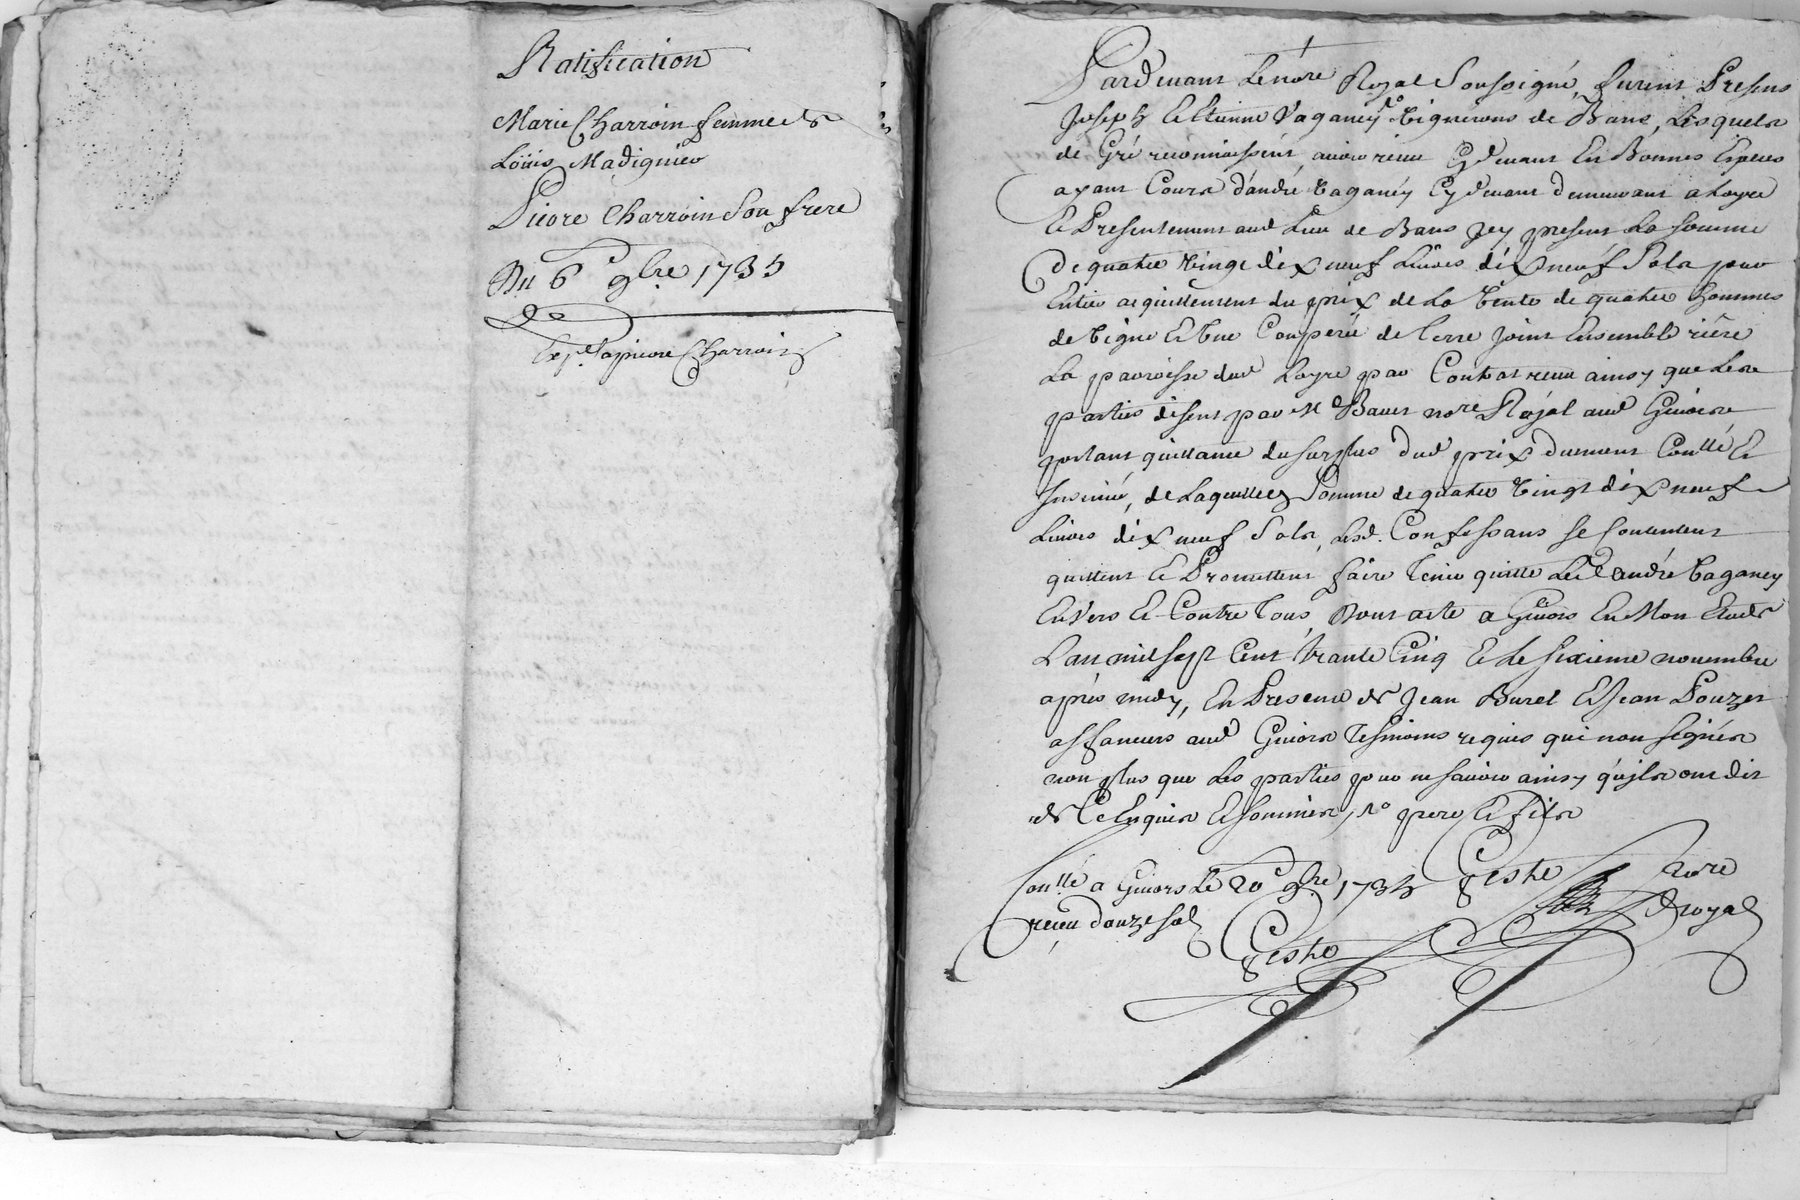 Ratification
Marie Charroin femme de
Loüis Madignier
Pierre Charroin son frere
Du 6e 9bre 1735
Exp. Charroin
Pardevant Le nore Royal Soussigné, furent Presens
Joseph Et Etienne Vaganey 1o Vignerons de Bans, Lesquels
de Gré reconnoissent avoir reçu Cydevant En Bonnes Especes
ayant Cours d'andré Vaganéy Cydevant demeurant a Loyre
Et Presentement aud Lieu de Bans Jcy present La Somme
De quatre Vingt dix neuf Livres dix neuf Sols pour
Entier acquittement du prix de La Vente de quatre hommes
de Vigne Et Une Couperée de Terre Joint Ensemble riére
La paroisse dud Loyre par Contrat recu ainsy que Les
parties disent par Me Bauet nore Royal aud Givors
portant quittance du surplus dud prix duement Conllé Et
Insinué, de Laquelle Somme de quatre Vingt dix neuf
Livres dix neuf Sols, Lesd. Confessans se Contentent
quittent Et Promettent faire Tenir quitte Led andré Vaganey
Envers Et Contre Tous, Dont acte a Givors En Mon Etude
L'an mil sept Cent Trante Cinq Et Le sixieme novembre
aprés midy, En Presence de Jean Burel Et Jean Pouzet
affaneurs aud Givors Tesmoins requis qui n'ont signés
non plus que Les parties pour ne scavoir ainsy qu'jls ont dit
de Ce Enquis Et sommés, 1o pere Et fils
Conllé a Givors Le 20e 9bre 1735
reçu douze sols
Geste
Nore
Royal
Geste